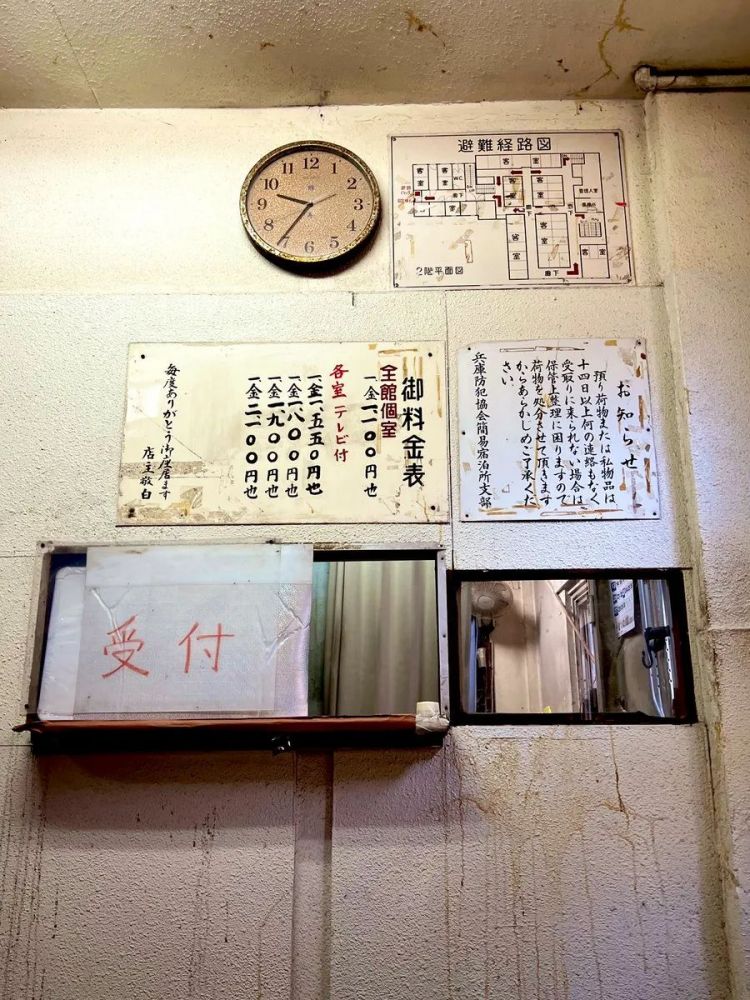 12
1
2
3
4
5
6
7
8
9
10
11
避難経路図
客室
客室
WC
客室
客室
客室
客室
客室
管理人室
廊下
廊下
客室
客室
廊下
2階平面図
御料金表
全館個室
一金一、一〇〇円也
各室テレビ付
一金一、五五〇円也
一金一、八〇〇円也
一金一、九〇〇円也
一金二、一〇〇円也
毎度ありがとう御座居ます
店主敬白
お知らせ
預り荷物または私物品は
十四日以上何の連絡もなく
受取りに来られない場合は
保管上整理に困りますので
荷物を処分させて頂きます
からあらかじめご了承くだ
さい。
兵庫防犯協会簡易宿泊所支部
受付